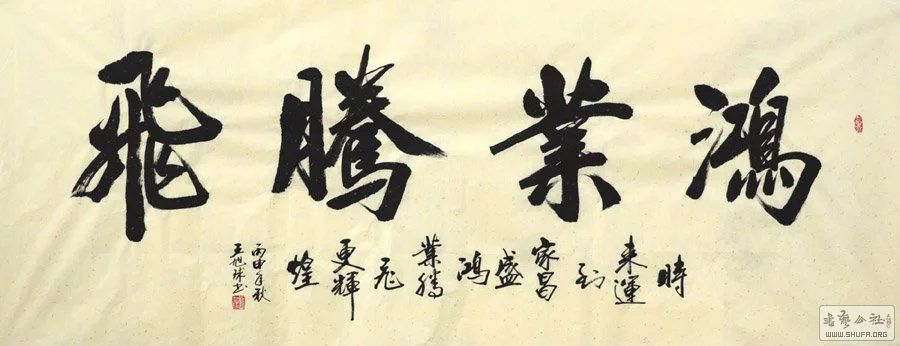 鴻業騰飛
時
来運
到
家昌
盛
鴻
業騰
飛
更輝
煌
丙申年秋
王旭
書藝公社
WWW.SHUFA.ORG